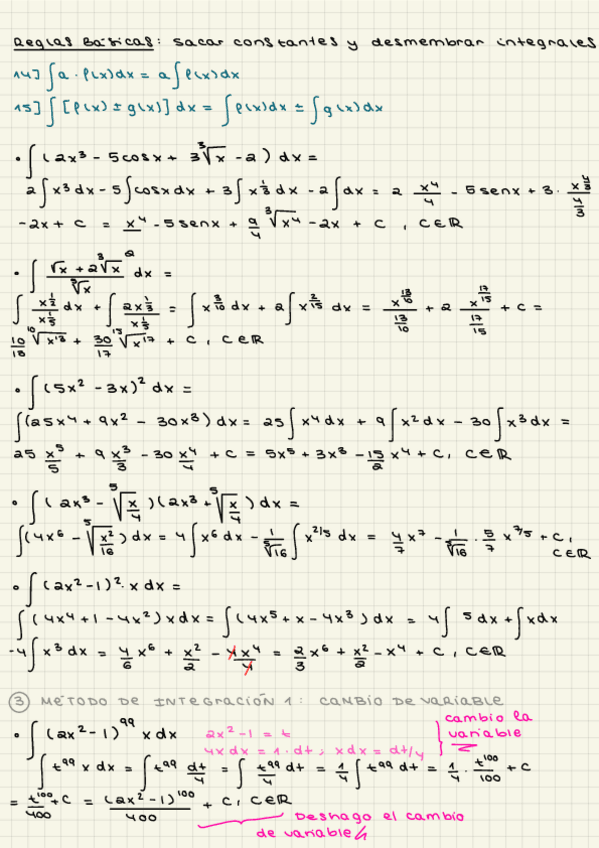 Reglas Básicas: sacar constantes y desmembrar integrales
14] ∫ a · f(x) dx = a ∫ f(x) dx
15] ∫ [f(x) ± g(x)] dx = ∫ f(x) dx ± ∫ g(x) dx
• ∫ (2x³ - 5cosx + 3∛x - 2) dx =
2∫x³ dx - 5∫cosx dx + 3∫x^(1/3) dx - 2∫dx = 2 x⁴/4 - 5 senx + 3 · x^(4/3)/(4/3)
-2x + C = x⁴/ - 5 senx + 9/4 ∛x⁴ - 2x + C , C∈ℝ
• ∫ (√x + 2∛x)/⁵√x dx =
∫ x^(1/2)/x^(1/5) dx + ∫ 2x^(1/3)/x^(1/5) = ∫ x^(3/10) dx + 2∫ x^(2/15) dx = x^(13/10)/(13/10) + 2 x^(17/15)/(17/15) + C =
10/13 ¹⁰√x¹³ + 30/17 ¹⁵√x¹⁷ + C , C∈ℝ
• ∫ (5x² - 3x)² dx =
∫(25x⁴ + 9x² - 30x³) dx = 25∫x⁴ dx + 9∫x² dx - 30∫x³ dx =
25 x⁵/5 + 9 x³/3 - 30 x⁴/4 + C = 5x⁵ + 3x³ - 15/2 x⁴ + C , C∈ℝ
• ∫ (2x³ - ⁵√(x/4)) (2x³ + ⁵√(x/4)) dx =
∫(4x⁶ - ⁵√(x²/16)) dx = 4∫x⁶ dx - 1/⁵√16 ∫ x^(2/5) dx = 4/7 x⁷ - 1/⁵√16 · 5/7 x^(7/5) + C ,
C∈ℝ
• ∫ (2x² - 1)² · x dx =
∫ (4x⁴ + 1 - 4x²) x dx = ∫ (4x⁵ + x - 4x³) dx = 4∫ ⁵ dx + ∫x dx
-4∫x³ dx = 4/6 x⁶ + x²/2 - 4x⁴/4 = 2/3 x⁶ + x²/2 - x⁴ + C , C∈ℝ
③ MÉTODO DE INTEGRACIÓN 1: CAMBIO DE VARIABLE
• ∫ (2x² - 1)⁹⁹ x dx
2x² - 1 = t
4x dx = 1 · dt ; x dx = dt/4
cambio la
variable
∫ t⁹⁹ x dx = ∫ t⁹⁹ dt/4 = ∫ t⁹⁹/4 dt = 1/4 ∫ t⁹⁹ dt = 1/4 · t¹⁰⁰/100 + C
= t¹⁰⁰/400 + C = (2x² - 1)¹⁰⁰/400 + C , C∈ℝ
Deshago el cambio
de variable